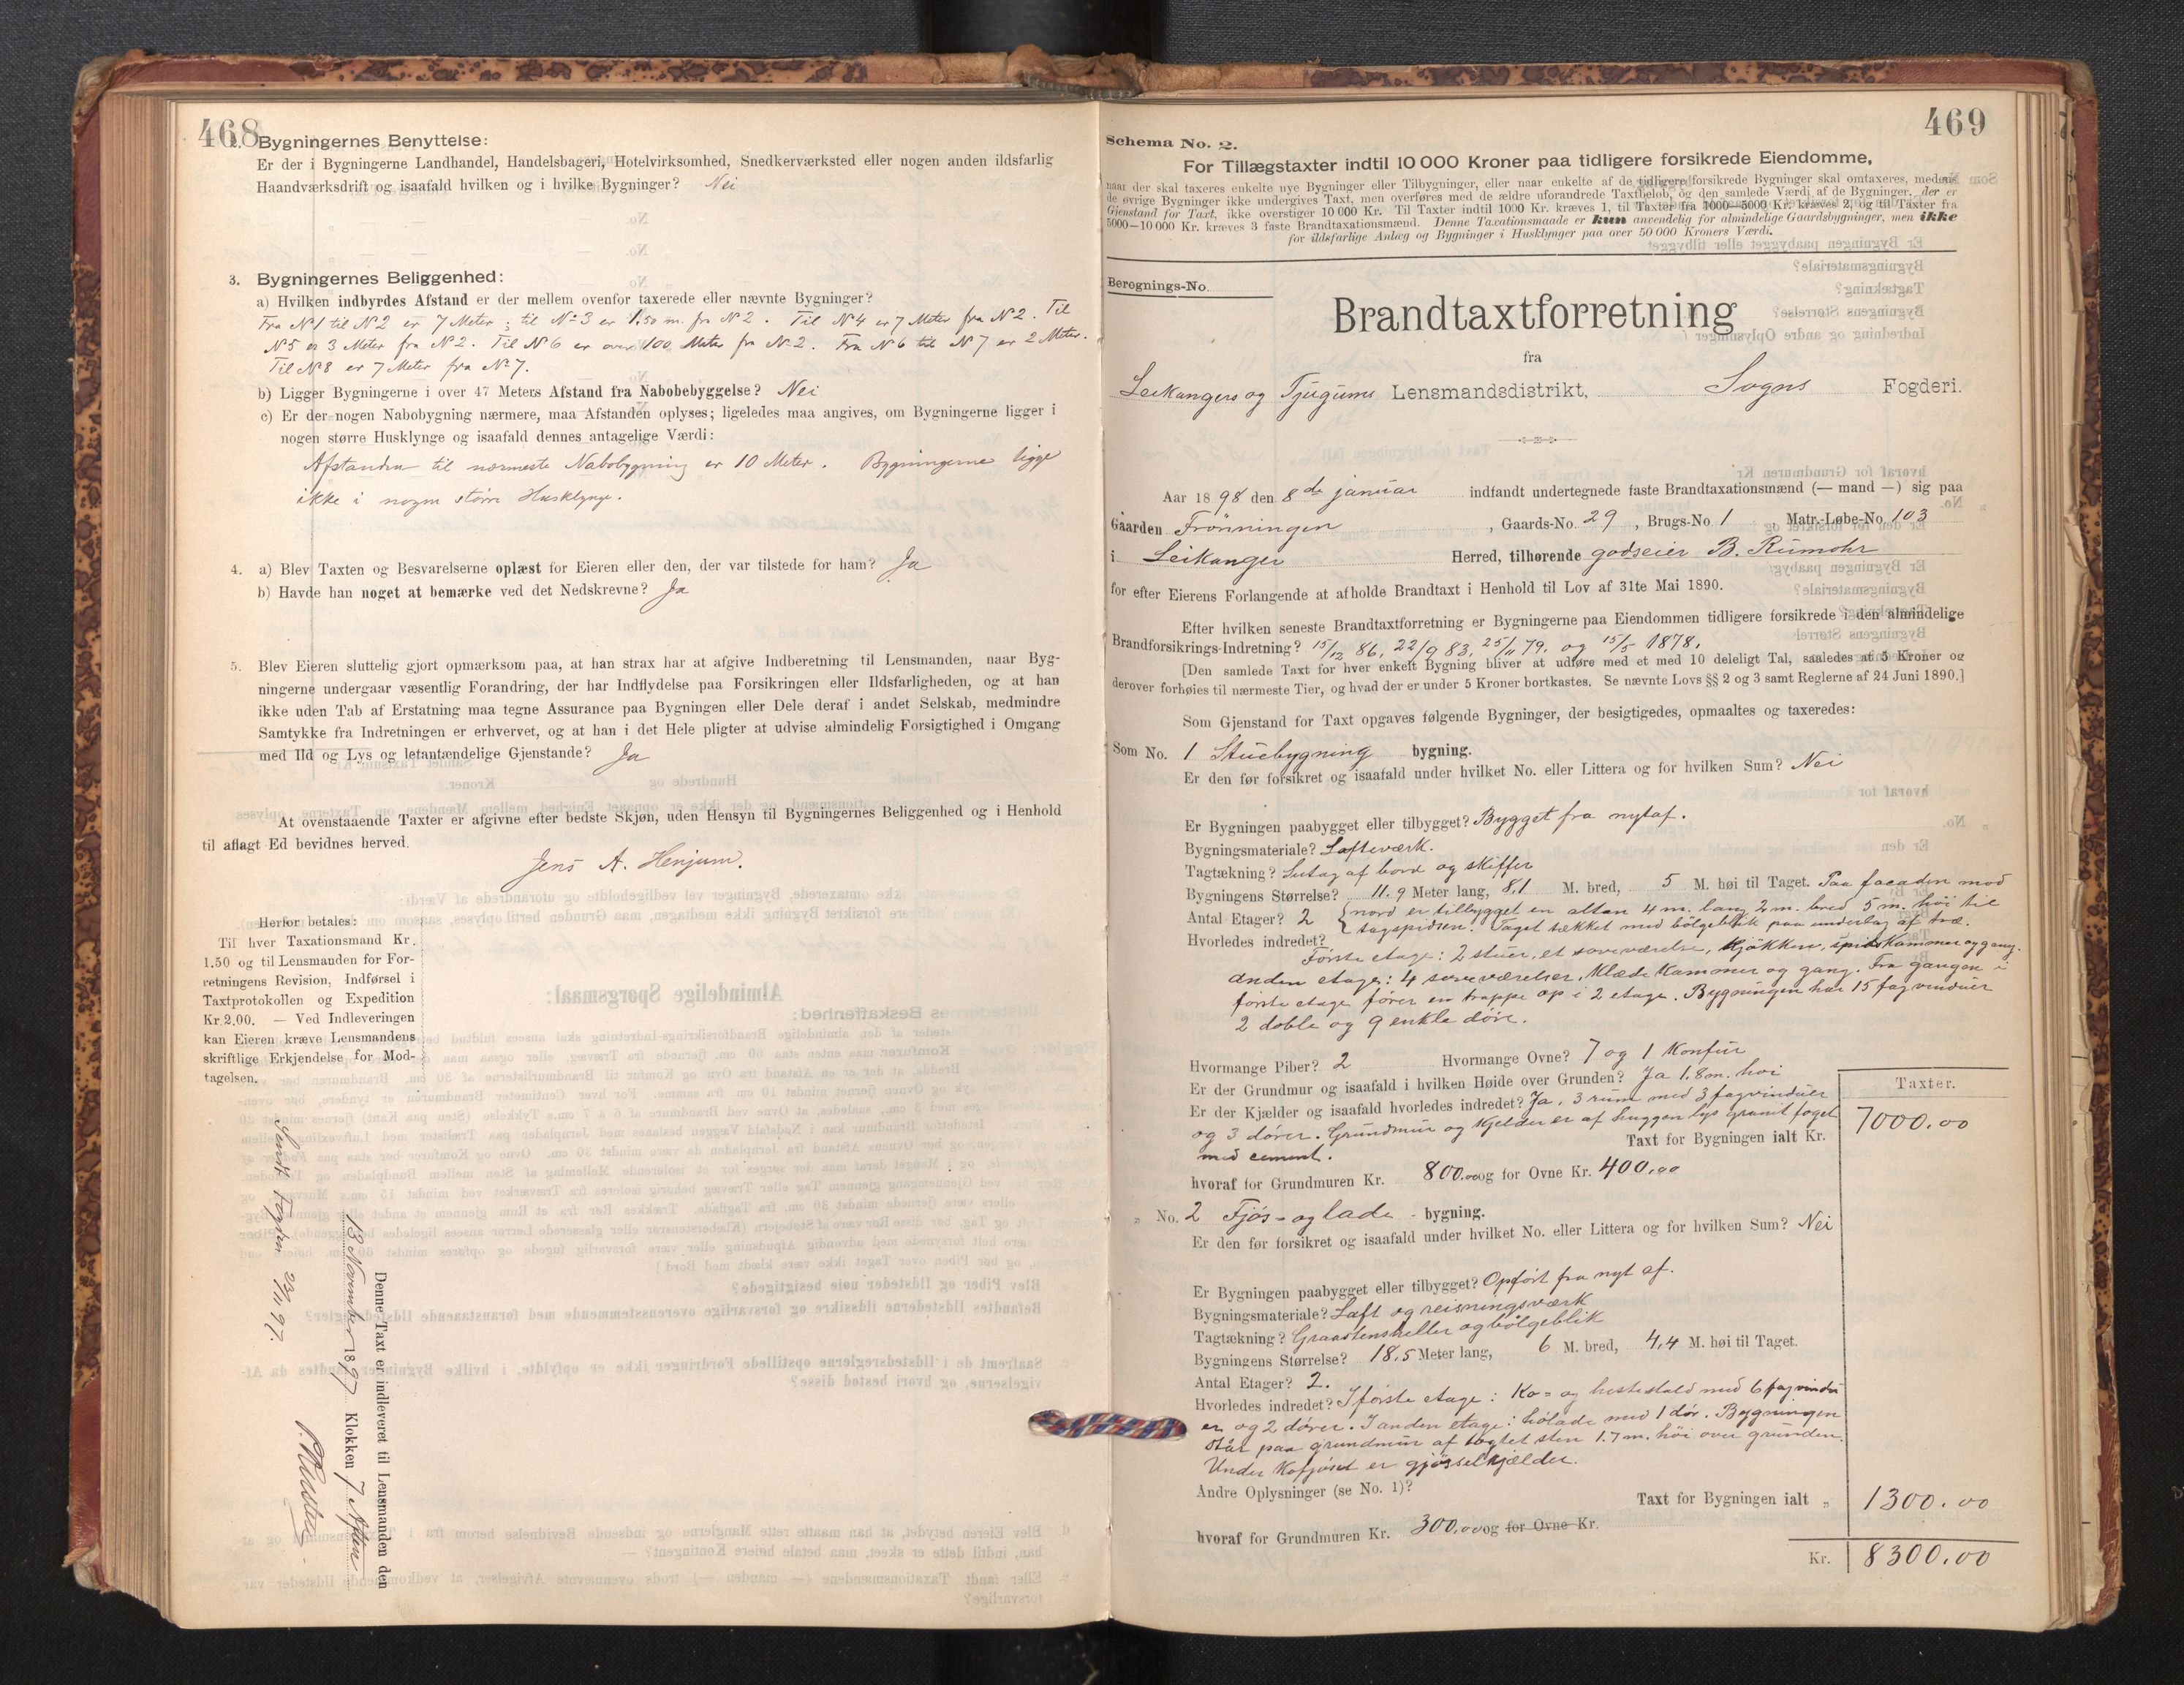 468
2. Bygningernes Benyttelse:
Er der i Bygningerne Landhandel, Handelsbageri, Hotelvirksomhed, Snedkerværksted eller nogen anden ildsfarlig
Haandværksdrift og isaafald hvilken og i hvilke Bygninger? Nei
3. Bygningernes Beliggenhed:
a) Hvilken indbyrdes Afstand er der mellem ovenfor taxerede eller nævnte Bygninger?
Fra N1 til N2 er 7 Meter; til No 3 er 1.50 m. fr N2. Til N4 er 7 Meter fra N2. Til
N5 er 3 Meter fra N2. Til N6 er over 100 Meter fra N2. Fra N6 til N7 er 2 Meter.
Til N8 er 7 Meter fra N7.
b) Ligger Bygningerne i over 47 Meters Afstand fra Nabobebyggelse? Nei
c) Er der nogen Nabobygning nærmere, maa Afstanden oplyses; ligeledes maa angives, om Bygningerne ligger i
nogen større Husklynge og isaafald dennes antagelige Værdi:
Afstanden til nærmeste Nabobygning er 10 Meter. Bygningerne ligge
ikke i nogen større Husklynge.
4. a) Blev Taxten og Besvarelserne oplæst for Eieren eller den, der var tilstede for ham? Ja
b) Havde han noget at bemærke ved det Nedskrevne? Ja
5. Blev Eieren sluttelig gjort opmærksom paa, at han strax har at afgive Indberetning til Lensmanden, naar Byg-
ningerne undergaar væsentlig Forandring, der har Indflydelse paa Forsikringen eller Ildsfarligheden, og at han
ikke uden Tab af Erstatning maa tegne Assurance paa Bygningen eller Dele deraf i andet Selskab, medmindre
Samtykke fra Indretningen er erhvervet, og at han i det Hele pligter at udvise almindelig Forsigtighed i Omgang
med Ild og Lys og letantændelige Gjenstande? Ja
At ovenstaaende Taxter er afgivne efter bedste Skjøn, uden Hensyn til Bygningernes Beliggenhed og i Henhold
til aflagt Ed bevidnes herved.
Jens A. Henjum.
Herfor betales:
Til hver Taxationsmand Kr.
1.50 og til Lensmanden for For-
retningens Revision, Indførsel i
Taxtprotokollen og Expedition
Kr. 2.00. — Ved Indleveringen
kan Eieren kræve Lensmandens
skriftlige Erkjendelse for Mod-
tagelsen.
Denne Taxt er indleveret til Lensmanden den
13 November 1897 Klokken 7 Aften
Sendt Fogden 23/11 97.
469
Schema No. 2.
For Tillægstaxter indtil 10 000 Kroner paa tidligere forsikrede Eiendomme,
naar der skal taxeres enkelte nye Bygninger eller Tilbygninger, eller naar enkelte af de tidligere forsikrede Bygninger skal omtaxeres, medens
de øvrige Bygninger ikke undergives Taxt, men overføres med de ældre uforandrede Taxtbeløb, og den samlede Værdi af de Bygninger, der er
Gjenstand for Taxt, ikke overstiger 10 000 Kr. Til Taxter indtil 1000 Kr. kræves 1, til Taxter fra 1000—5000 Kr. kræves 2, og til Taxter fra
5000—10 000 Kr. kræves 3 faste Brandtaxationsmænd. Denne Taxationsmaade er kun anvendelig for almindelige Gaardsbygninger, men ikke
for ildsfarlige Anlæg og Bygninger i Husklynger paa over 50 000 Kroners Værdi.
Beregnings-No.
Brandtaxtforretning
fra
Leikangers og Tjugums Lensmandsdistrikt, Sogns Fogderi.
Aar 1898 den 8de januar indfandt undertegnede faste Brandtaxationsmænd (— mand —) sig paa
Gaarden Frønningen, Gaards-No. 29, Brugs-No. 1 og Matr.-Løbe-No. 103
i Leikanger Herred, tilhørende godseier B. Rumohr
for efter Eierens Forlangende at afholde Brandtaxt i Henhold til Lov af 31te Mai 1890.
Efter hvilken seneste Brandtaxtforretning er Bygningerne paa Eiendommen tidligere forsikrede i den almindelige
Brandforsikrings-Indretning? 15/12 86, 22/9 83, 25/11 79, og 15/5 1878.
[Den samlede Taxt for hver enkelt Bygning bliver at udføre med et med 10 deleligt Tal, saaledes at 5 Kroner og
derover forhøies til nærmeste Tier, og hvad der er under 5 Kroner bortkastes. Se nævnte Lovs §§ 2 og 3 samt Reglerne af 24 Juni 1890.]
Som Gjenstand for Taxt opgaves følgende Bygninger, der besigtigedes, opmaaltes og taxeredes:
Som No. 1 Stuebygning bygning.
Er den før forsikret og isaafald under hvilket No. eller Littera og for hvilken Sum? Nei
Er Bygningen paabygget eller tilbygget? Bygget fra nytaf.
Bygningsmateriale? Lafteværk.
Tagtækning? Sutag af bord og skiffer
Bygningens Størrelse? 11.9 Meter lang, 8,1 M. bred, 5 M. høi til Taget. Paa facaden mod
Antal Etager? 2 { nord er tilbygget en altan 4 m. lang 2 m. bred 5 m. høi til
tagspidsen. Taget tækket med bølgeblik paa underlag af træ.
Hvorledes indredet?
Første etage: 2 stuer, et soveværelse, kjøkken, spiskammer og gang.
Anden etage: 4 soveværelser, klædekammer og gang. Fra gangen i
første etage fører en trappe op i 2 etage. Bygningen har 15 fag vinduer
2 doble og 9 enkle døre.
Hvormange Piber? 2 Hvormange Ovne? 7 og 1 Komfur
Er der Grundmur og isaafald i hvilken Høide over Grunden? Ja 1.8 m. høi
Er der Kjælder og isaafald hvorledes indredet? Ja, 3 rum med 3 fag vinduer
og 3 dører. Grundmur og kjelder er af huggen lys granit foget
med cement.
Taxter.
Taxt for Bygningen ialt Kr. 7000.00
hvoraf for Grundmuren Kr. 800.00 og for Ovne Kr. 400.00
„ No. 2 Fjøs- og lade - bygning.
Er den før forsikret og isaafald under hvilket No. eller Littera og for hvilken Sum? Nei
Er Bygningen paabygget eller tilbygget? Opført fra nyt af.
Bygningsmateriale? Laft og reisningsværk
Tagtækning? Graastensheller og bølgeblik
Bygningens Størrelse? 18,5 Meter lang, 6 M. bred, 4,4 M. høi til Taget.
Antal Etager? 2.
Hvorledes indredet? I første etage: Ko- og hestestald med 6 fag vindu
er og 2 dører. I anden etage: hølade med 1 dør. Bygningen
står paa grundmur af sten 1.7 m. høi over grunden.
Under Kofjøset er gjødselkjælder.
Andre Oplysninger (se No. 1)?
Taxt for Bygningen ialt „ 1300.00
hvoraf for Grundmuren Kr. 300.00 og for Ovne Kr.
Kr. 8300.00